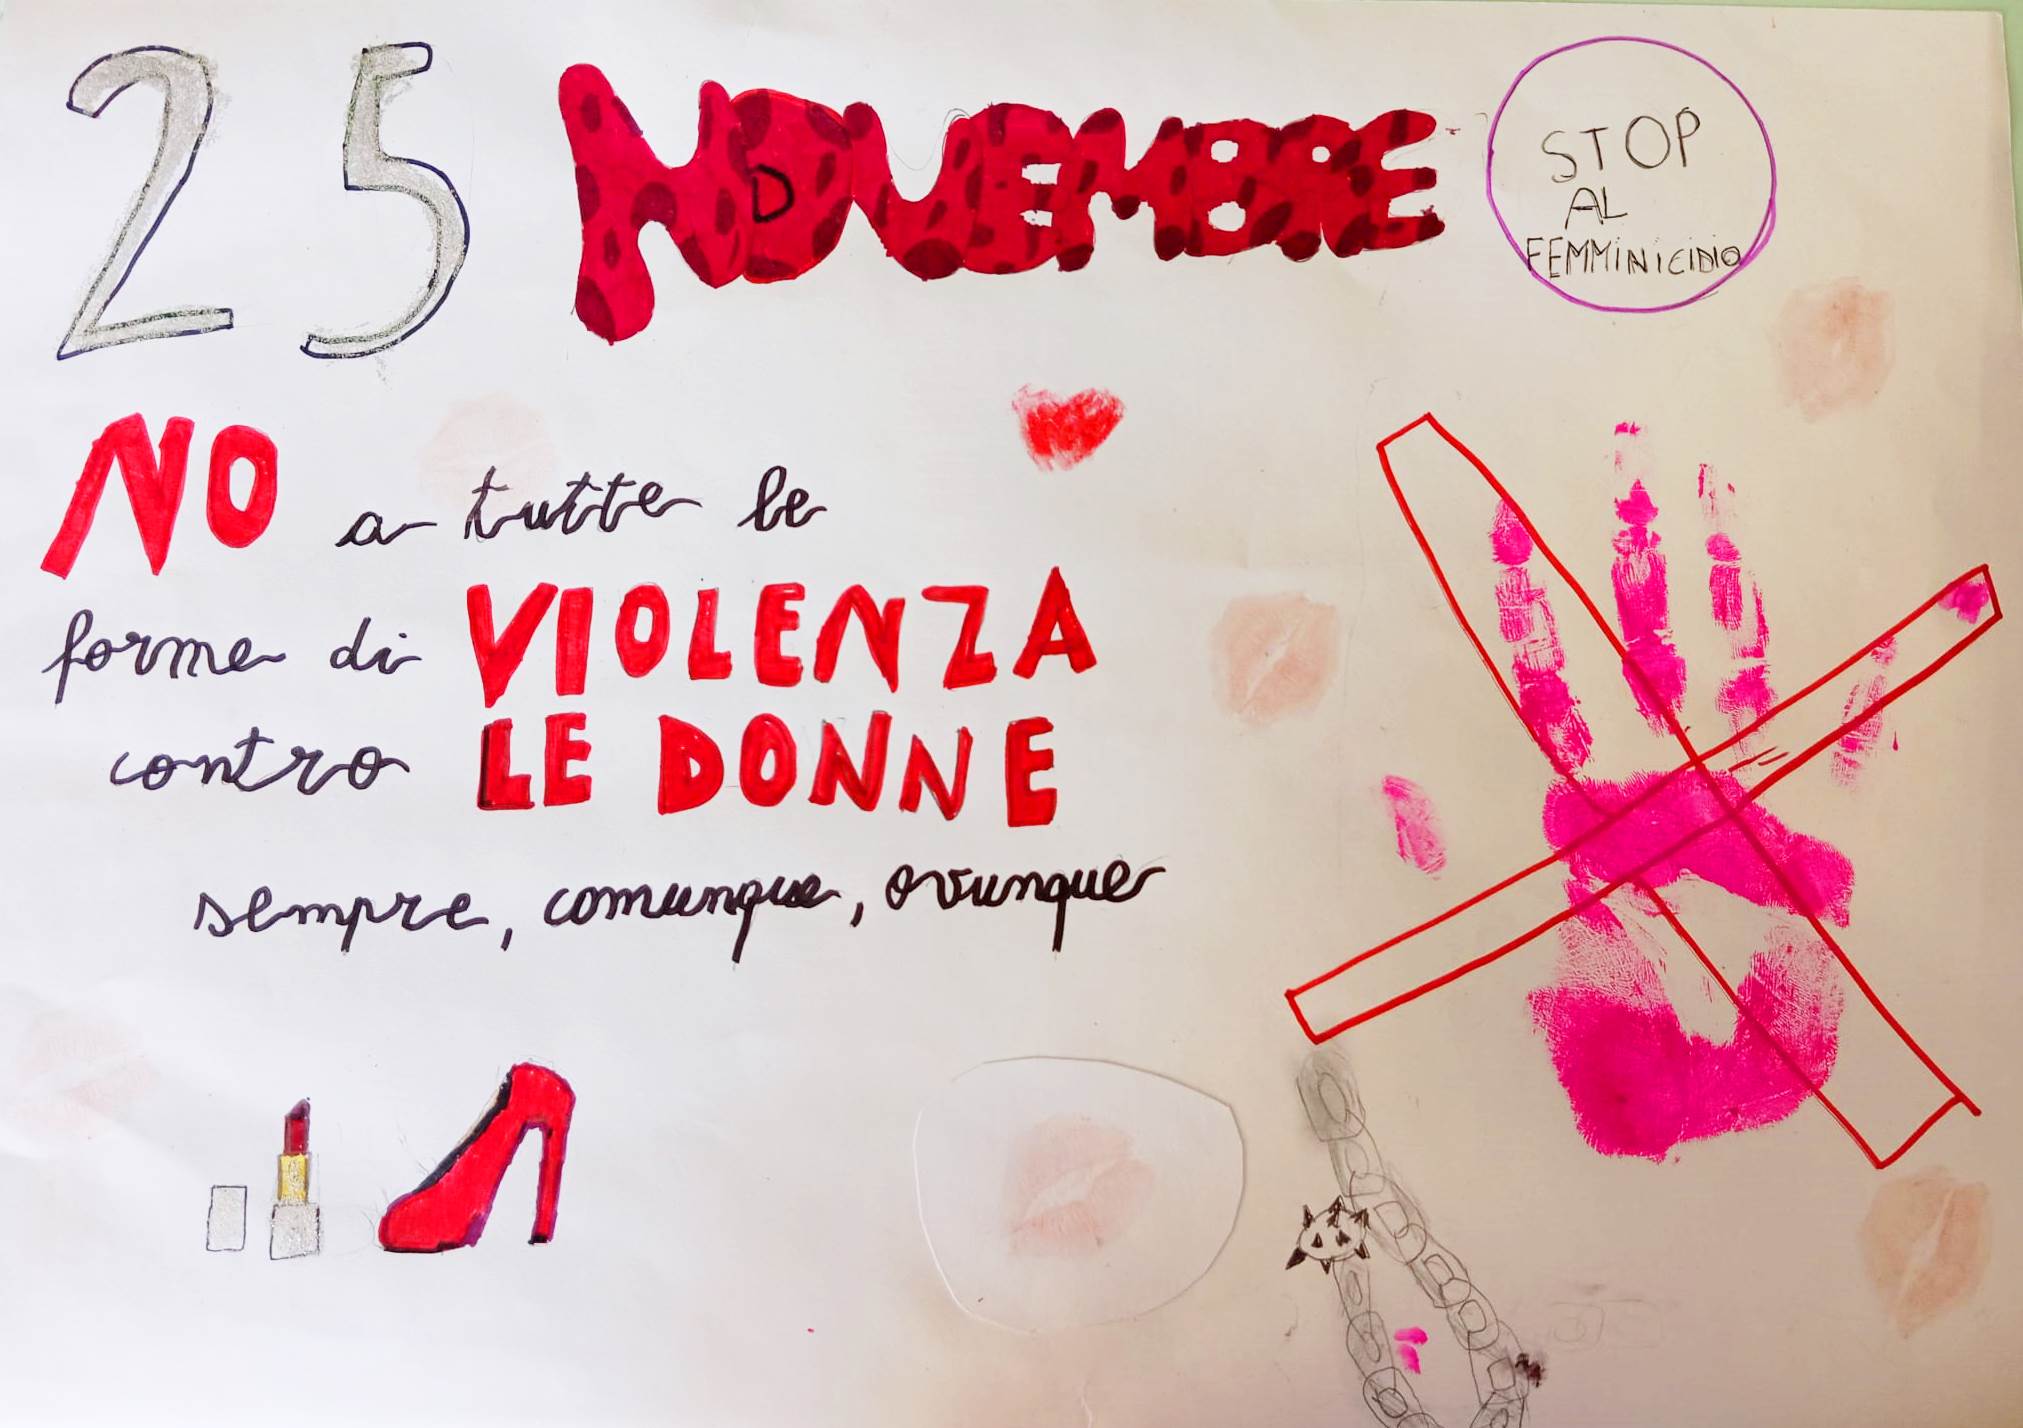 25 NOVEMBRE
STOP
AL
FEMMINICIDIO
NO a tutte le
forme di VIOLENZA
contro LE DONNE
sempre, comunque, ovunque